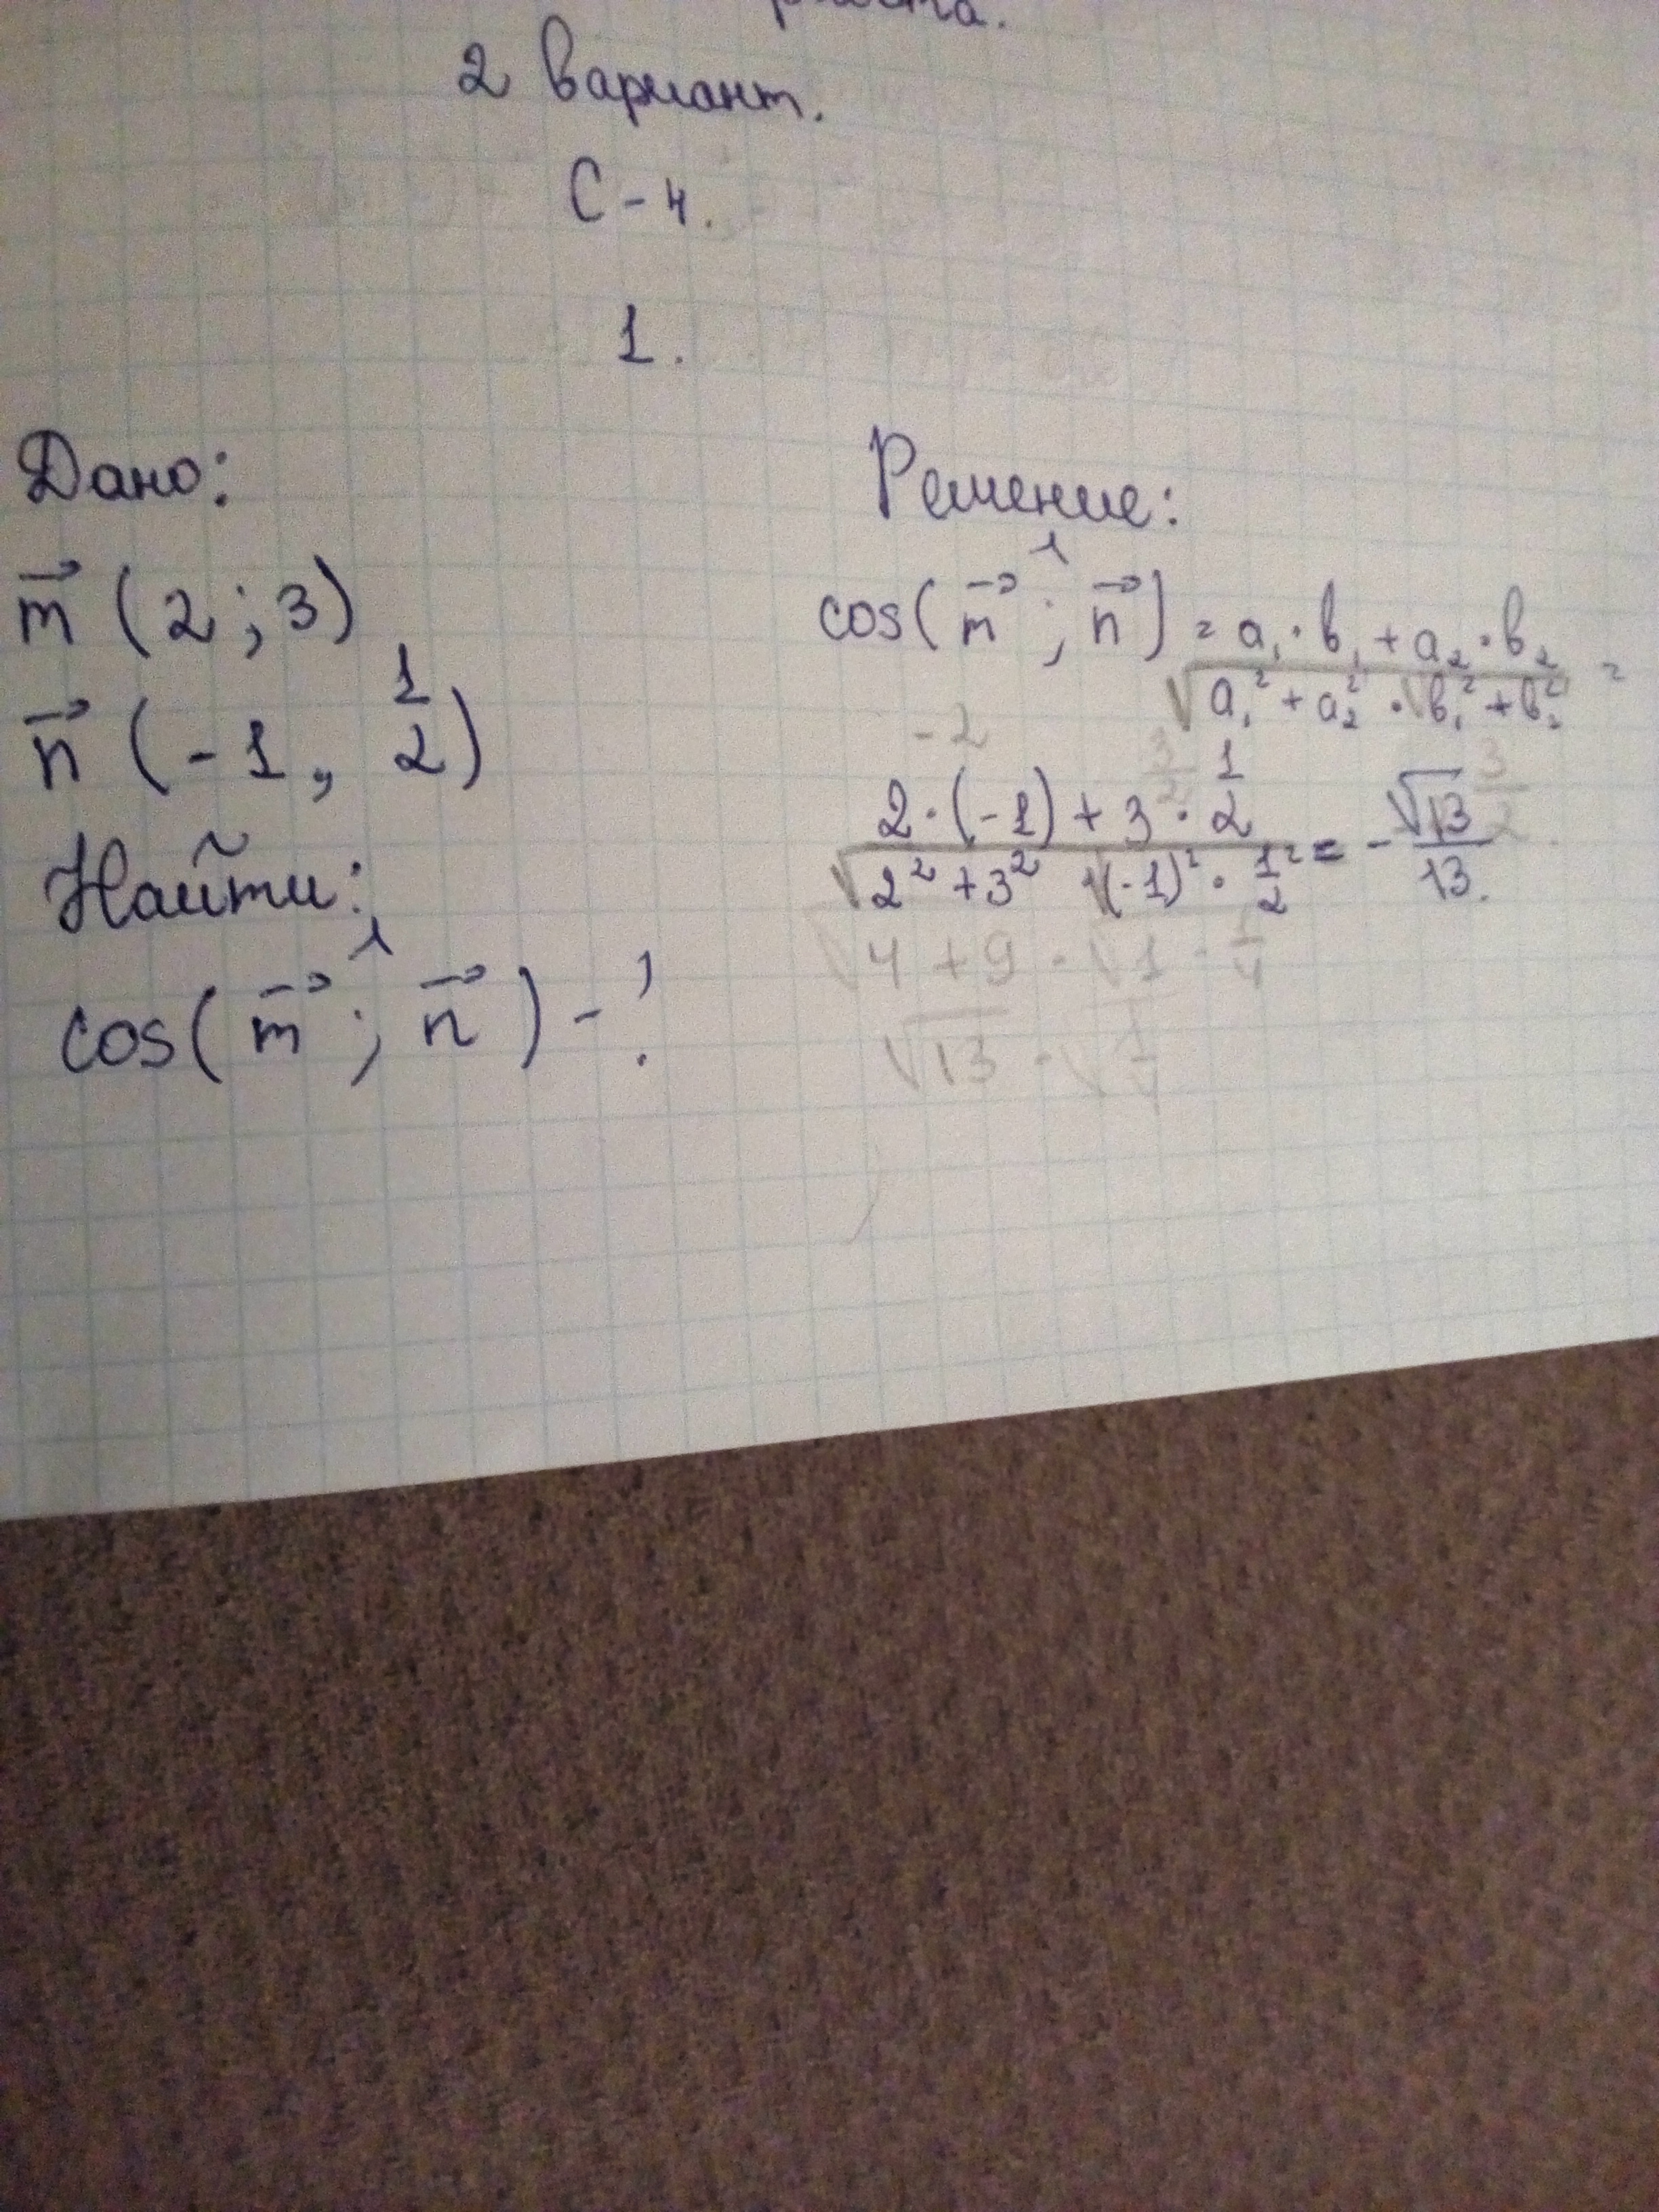 2 вариант.
С-4.
1.
Дано:
m⃗ (2; 3)
n⃗ (-1, 1/2)
Найти:
cos(m⃗ ^; n⃗) - ?
Решение:
cos(m⃗ ^; n⃗) = a₁·b₁ + a₂·b₂ / √a₁² + a₂² · √b₁² + b₂² =
-2 3/2 3/2
2·(-1) + 3·1/2 / √2² + 3² √(-1)² · 1/2² = - √13/13.
√4 + 9 · √1 · 1/4
√13 · √1/4